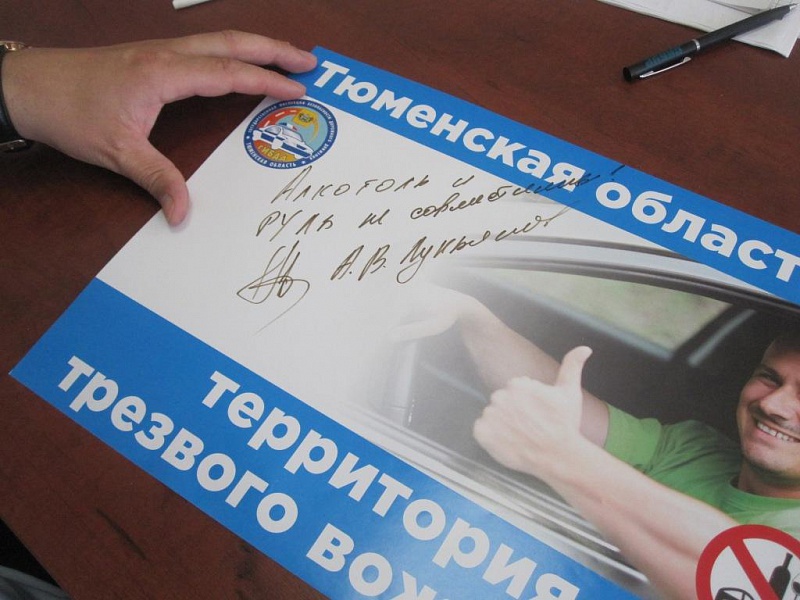 Тюменская област
ТЮМЕНСКАЯ ОБЛАСТЬ
Алкоголь и
руль не совместимы!
А.В. Лукьянов
территория
трезвого вож